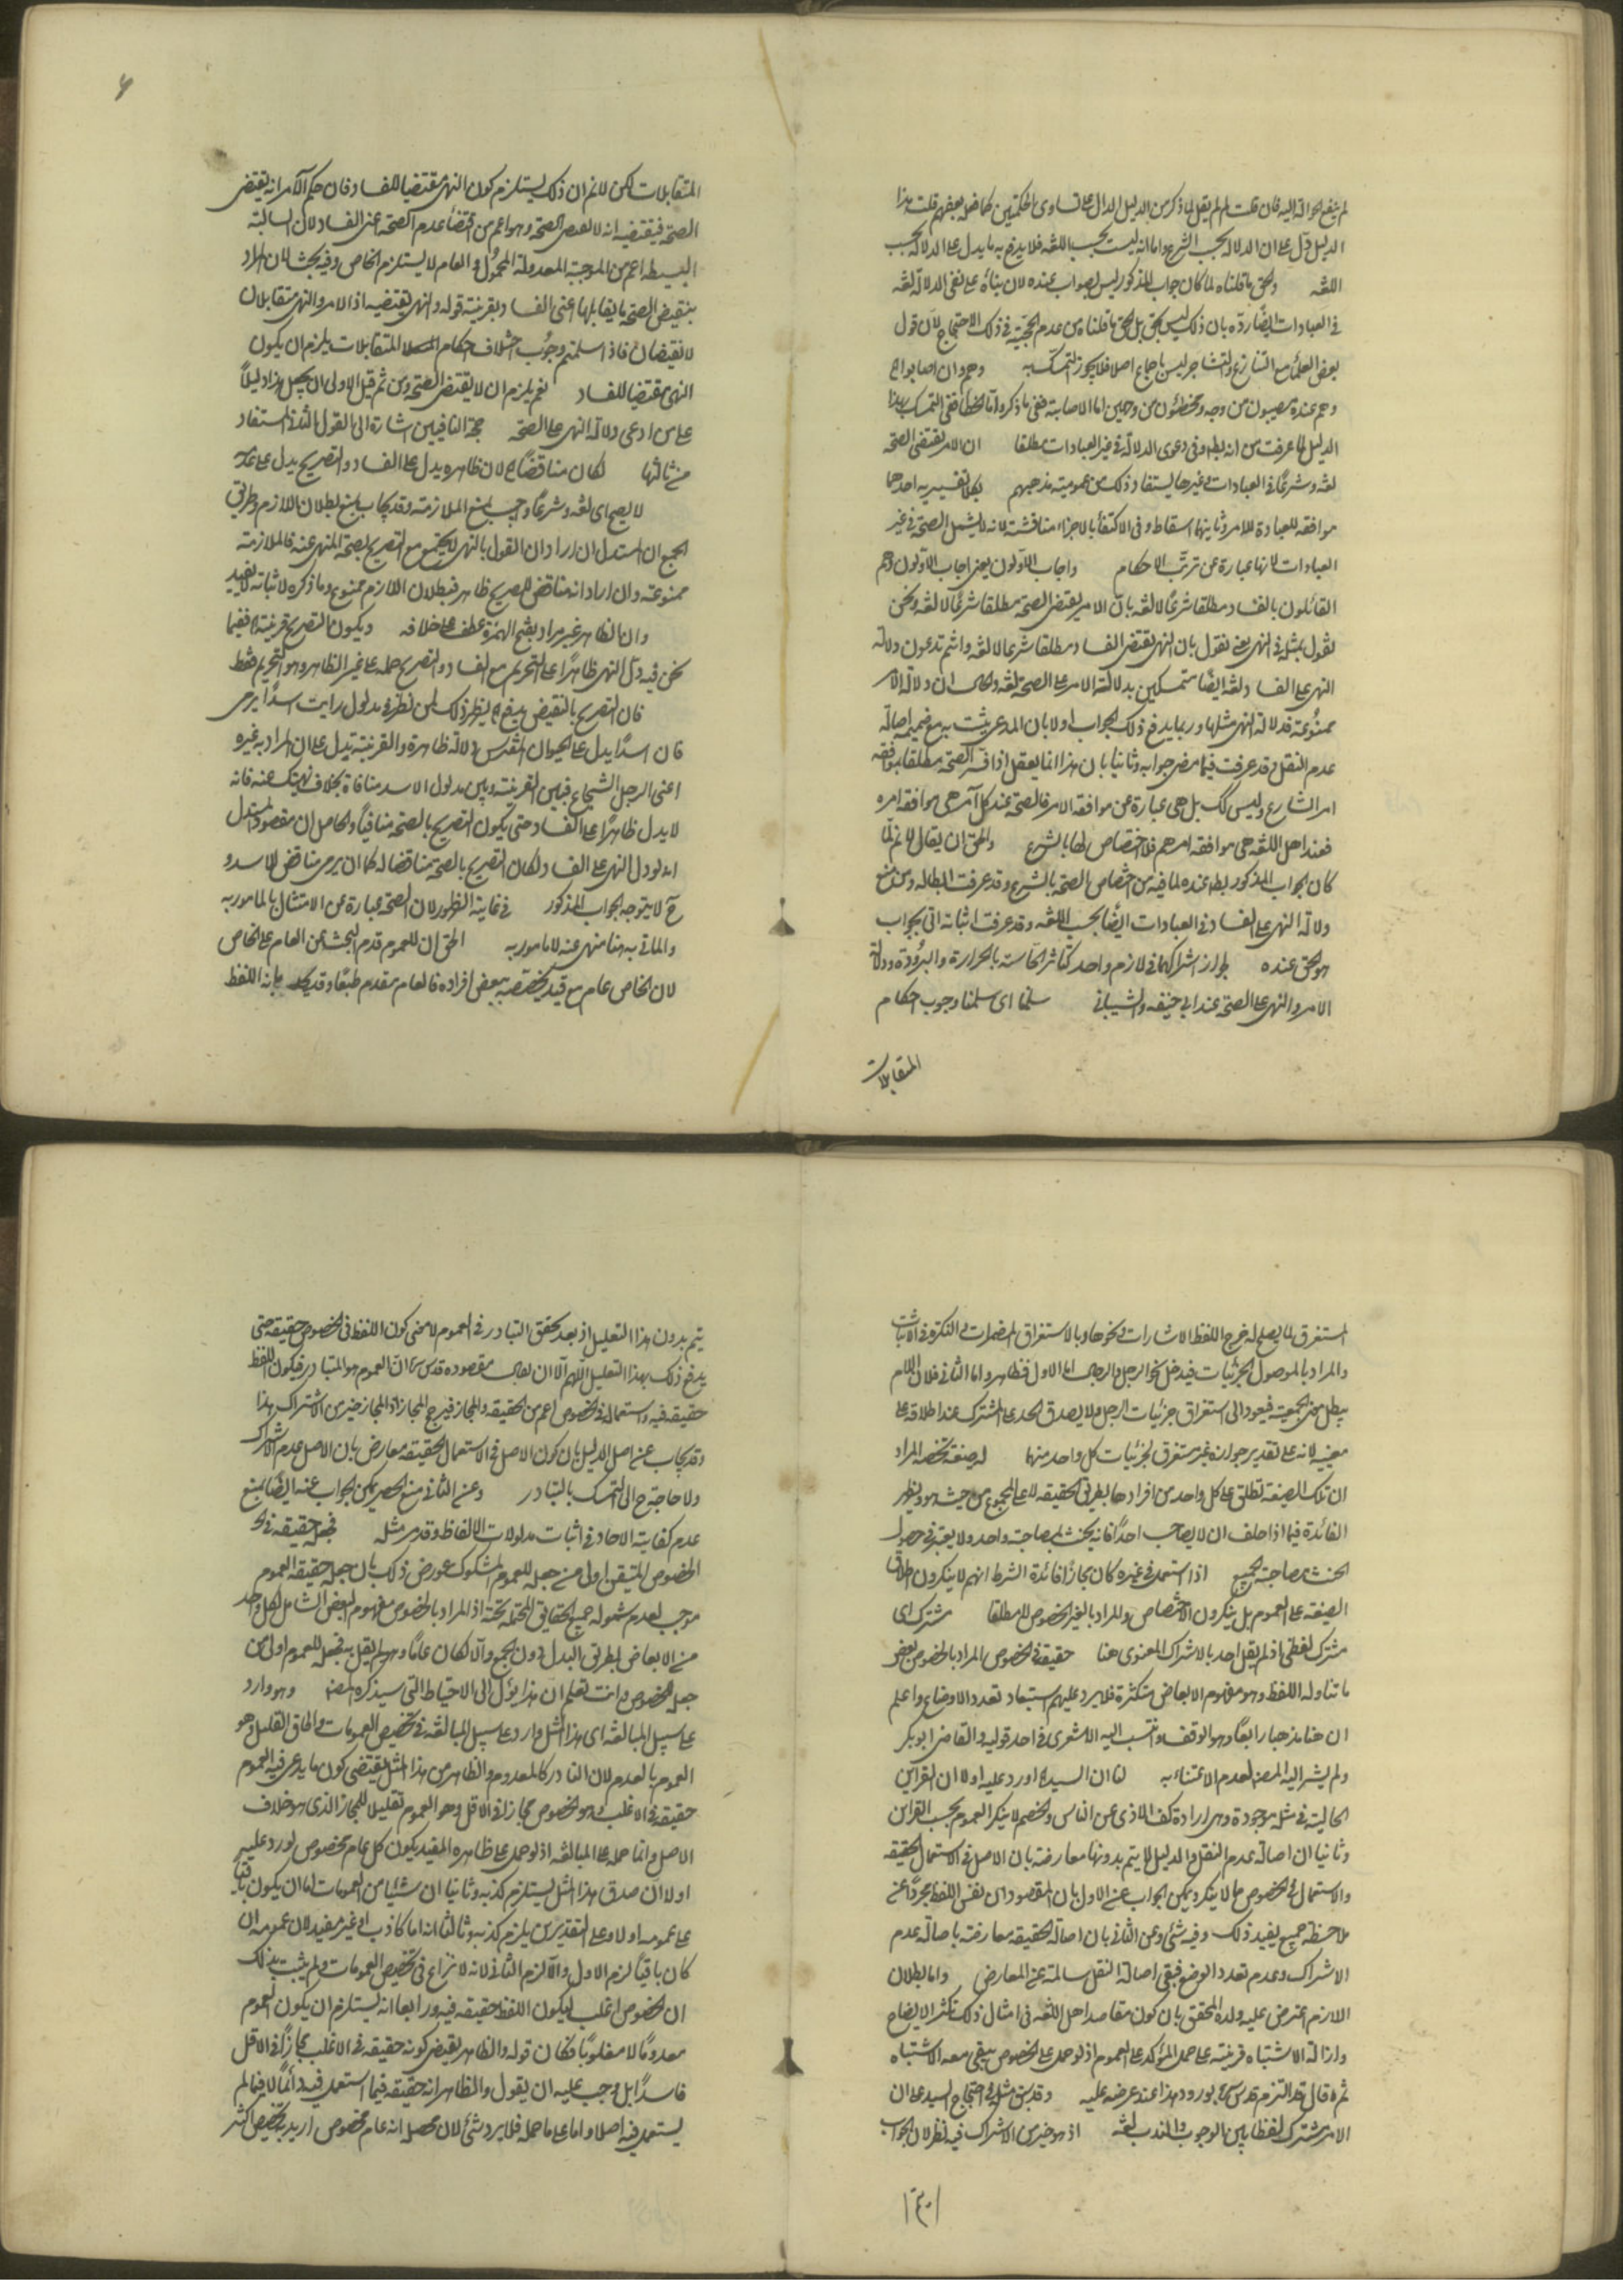 لم ينفع الحوالة اليه فان قلت لم لم يقل لما ذكر من الدليل الدال على تساوى الحكمين كما فعله بعضهم قلت هذا
الدليل دل على ان الدلالة بحسب الشرع واما انه ليست بحسب اللغه فلا يدفع به ما يدل على الدلالة بحسب
اللغه والحق ما قلناه لما كان جواب المذكور ليس بصواب عنده لان بناه على نفى الدلالة لغه
فى العبادات ايضا رده بان ذلك ليس بحق بل الحق ما قلناه من عدم الحجية فى ذلك الاحتجاج لان قول
بعض العلماء مع التنازع والتشاجر ليس باجماع اصلا فلا يجوز التمسك به وهم وان اصابوا اه
وهم عنده مصيبون من وجه ومخطئون من وجهين اما الاصابة ففى ما ذكر واما الخطأ ففى التمسك بهذا
الدليل لما عرفت من انه بط وفى دعوى الدلالة فى غير العبادات مطلقا ان الامر يقتضى الصحه
لغه وشرعا فى العبادات وغيرها يستفاد ذلك من عمومية مذهبهم بكلا تفسيريه احدهما
موافقه للعبادة للامر وثانيهما اسقاط وفى الاكتفاء بالاجزاء مناقشة لانه لا يشمل الصحة فى غير
العبادات لانها عبارة عن ترتب الاحكام واجاب الاولون يعنى اجاب الاولون وهم
القائلون بالفساد مطلقا شرعا لا لغه بان الامر يقتضى الصحة مطلقا شرعا لا لغه ونحن
نقول بمثله فى النهى يعنى نقول بان النهى يقتضى الفساد مطلقا شرعا لا لغه وانتم تدعون دلالة
النهى على الفساد ولغه ايضا متمسكين بدلالة الامر على الصحة لغه والحال ان دلالة الامر
ممنوعة فدلالة النهى مثلها وربما يدفع ذلك الجواب اولا بان المدعى يثبت به مع ضميمة اصالة
عدم النقل وقد عرفت فيما مضى جوابه وثانيا بان هذا انما يعقل اذا فسر الصحة مطلقا بموافقه
امر الشارع وليس كك بل هى عبارة عن موافقه الامر فالصحة عند كل آمر هى موافقه امره
فعند اهل اللغه هى موافقه امرهم فلا اختصاص لها بالشرع والحق ان يقال لا نم لما
كان الجواب المذكور بط عنده لما فيه من اختصاص الصحة بالشرع وقد عرفت ابطاله ومن منع
دلالة النهى على الفساد فى العبادات ايضا بحسب اللغه وقد عرفت اثباته اتى بجواب
هو الحق عنده لجواز اشتراكهما فى لازم واحد كتاثر الحاسة بالحرارة والبرودة ودلالة
الامر والنهى على الصحة عند ابى حنيفه والشيبانى سلمنا اى سلمنا وجوب احكام
المتقابلات
۶
المتقابلات لكن لا نم ان ذلك يستلزم كون النهى مقتضيا للفساد فان حكم الامر انه يقتضى
الصحة فنقيضه انه لا يقتضى الصحة وهو اعم من اقتضاء عدم الصحة اعنى الفساد لان السالبة
البسيطه اعم من الموجبة المعدولة المحمول والعام لا يستلزم الخاص وفيه بحث لان المراد
بنقيض الصحة ما يقابلها اعنى الفساد بقرينة قوله والنهى نقيضه اذ الامر والنهى متقابلان
لا نقيضان فاذا سلمتم وجوب اختلاف احكام المتقابلات يلزم ان يكون
النهى مقتضيا للفساد نعم يلزم ان لا يقتضى الصحة ومن ثم قيل الاولى ان يجعل هذا دليلا
على من ادعى دلالة النهى على الصحة حجة النافيين اشارة الى القول الثالث المستفاد
من ثالثها لكان مناقضا اه لان ظاهره يدل على الفساد والتصريح يدل على عدمه
لا يصح اى لغه وشرعا واجيب بمنع الملازمة وقد يجاب بمنع بطلان اللازم وطريق
الجمع ان المستدل ان اراد ان القول بالنهى لا يجتمع مع التصريح بصحة المنهى عنه فالملازمة
ممنوعة وان اراد انه مناقض للصريح ظاهر فبطلان اللازم ممنوع وما ذكره لاثباته لا يفيد
وان الظاهر غير مراد بفتح الهمزة عطف على خلافه ويكون التصريح قرينة اه ففيما
نحن فيه دل النهى ظاهرا على التحريم مع الفساد والتصريح حمله على غير الظاهر وهو التحريم فقط
فان التصريح بالنقيض يدفع اه يظهر ذلك لمن نظر فى مدلول رايت اسدا يرمى
فان اسدا يدل على الحيوان المفترس دلالة ظاهرة والقرينة تدل على ان المراد به غيره
اعنى الرجل الشجاع فبين القرينة وبين مدلول الاسد منافاة بخلاف نهيتك عنه فانه
لا يدل ظاهرا على الفساد حتى يكون التصريح بالصحة منافيا والحاصل ان مقصود المستدل
انه لو دل النهى على الفساد لكان التصريح بالصحة مناقضا له كما ان يرمى مناقض للاسد و
ح لا يتوجه الجواب المذكور فى غاية الظهور لان الصحة عبارة عن الامتثال بالمامور به
والماتى به هنا منهى عنه لا مامور به الحق ان للعموم قدم البحث عن العام على الخاص
لان الخاص عام مع قيد يخصصه ببعض افراده فالعام مقدم طبعا وقد يحد بانه اللفظ
المستغرق لما يصلح له فخرج اللفظ الاشارات ونحوها وبالاستغراق المضمرات والنكرة فى الاثبات
والمراد بالموصول الجزئيات فيدخل نحو الرجل والرجال اما الاول فظاهر واما الثانى فلان اللام
يبطل معنى الجمعية فيعود الى استغراق جزئيات الرجل ولا يصدق الحد على المشترك عند اطلاقه على
معنييه لانه على تقدير جوازه غير مستغرق لجزئيات كل واحد منها له صيغة تخصه المراد
ان تلك الصيغة تطلق على كل واحد من افرادها بطريق الحقيقه لا على المجموع من حيث هو ويظهر
الفائدة فيما اذا حلف ان لا يصاحب احدا فانه يحنث بمصاحبة واحد ولا يعتبر فى حصول
الحنث مصاحبة الجميع اذا استعمل فى غيره كان مجازا فائدة الشرط انهم لا ينكرون اطلاق
الصيغة على العموم بل ينكرون الاختصاص والمراد بالغير الخصوص لا مطلقا مشترك اى
مشترك لفظى اذ لم يقل احد بالاشتراك المعنوى هنا حقيقة فى الخصوص المراد بالخصوص بعض
ما تناوله اللفظ وهو مفهوم الابعاض متكثرة فلا يرد عليهم استبعاد تعدد الاوضاع واعلم
ان هنا مذهبا رابعا وهو الوقف وانتسب اليه الاشعرى فى احد قوليه والقاضى ابو بكر
ولم يشر اليه المصنف لعدم الاعتناء به لنا ان السيد اه اورد عليه اولا ان القراين
الحالية فى مثله موجودة وهى ارادة كف الاذى عن الناس والخصم لا ينكر العموم بحسب القراين
وثانيا ان اصالة عدم النقل والدليل لا يتم بدونها معارضة بان الاصل فى الاستعمال الحقيقه
والاستعمال فى الخصوص مما لا ينكر ويمكن الجواب عن الاول بان المقصود ان نفس اللفظ مجردا عن
ملاحظة جميع يفيد ذلك وفيه شئ وعن الثانى بان اصالة الحقيقه معارضة باصالة عدم
الاشتراك وعدم تعدد الوضع فيبقى اصالة النقل سالمة عن المعارض واما بطلان
اللازم اعترض عليه ولده المحقق بان كون مقاصد اهل اللغه فى امثال ذلك تكثر الايضاح
وازالة الاشتباه قرينة على حمل المؤكد على العموم اذ لو حمل على الخصوص يبقى معه الاشتباه
ثم قال قد التزم قدس سره بورود هذا عند عرضه عليه وقد سبق مثله فى احتجاج السيد على ان
الامر مشترك لفظا بين الوجوب والندب لغه اذ هو خير من الاشتراك فيه نظر لان الجواب
يتم بدون هذا التعليل اذ بعد تحقق التبادر فى العموم لا معنى كون اللفظ فى الخصوص حقيقه حتى
يدفع ذلك بهذا التعليل اللهم الا ان يقال مقصوده قدس سره ان العموم هو المتبادر فيكون اللفظ
حقيقه فيه واستعماله فى الخصوص اعم من الحقيقه والمجاز فيرجح المجاز اذ المجاز خير من الاشتراك هذا
وقد يجاب عن اصل الدليل بان كون الاصل فى الاستعمال الحقيقة معارض بان الاصل عدم الاشتراك
ولا حاجة ح الى التمسك بالتبادر وعن الثانى منع الحصر يمكن الجواب عنه ايضا بمنع
عدم كفاية الاحاد فى اثبات مدلولات الالفاظ وقد مر مثله فجعله حقيقه فى
الخصوص المتيقن اولى من جعله للعموم المشكوك عورض ذلك بان جعله حقيقه العموم
موجب لعدم شموله جميع الحقايق المحتملة تحته اذ المراد بالخصوص مفهوم البعض الشامل لكل واحد
من الابعاض بطريق البدل دون الجمع والا لكان عاما وهو لم يقل به فجعله للعموم اولى من
جعله للخصوص وانت تعلم ان هذا يؤل الى الاحتياط التى سيذكره المصنف وهو وارد
على سبيل المبالغه اى هذا المثل وارد على سبيل المبالغه فى تخصيص العمومات والحاق القليل وهو
العموم بالعدم لان النادر كالمعدوم والظاهر من هذا المثل يقتضى كون ما يدعى فيه العموم
حقيقه فى الاغلب وهو الخصوص مجازا فى الاقل وهو العموم تقليلا للمجاز الذى هو خلاف
الاصل وانما حمله على المبالغه اذ لو حمل على ظاهره المفيد بكون كل عام مخصوص لورد عليه
اولا ان صدق هذا المثل يستلزم كذبه وثانيا ان شيئا من العمومات اما ان يكون باقيا
على عمومه او لا وعلى التقديرين يلزم كذبه وثالثا انه اما كاذب او غير مفيد لان عمومه ان
كان باقيا لزم الاول والا لزم الثانى لانه لا نزاع فى تخصيص العمومات ولم يثبت بذلك
ان الخصوص اغلب ليكون اللفظ حقيقه فيه ورابعا انه يستلزم ان يكون العموم
معدوما لا مغلوبا فكان قوله والظاهر يقتضى كونه حقيقه فى الاغلب مجازا فى الاقل
فاسدا بل وجب عليه ان يقول والظاهر انه حقيقه فيما استعمل فيه دائما لا فيما لم
يستعمل فيه اصلا واما على ما حمله فلا يرد شئ لان محصله انه عام مخصوص اريد به تخصيص اكثر